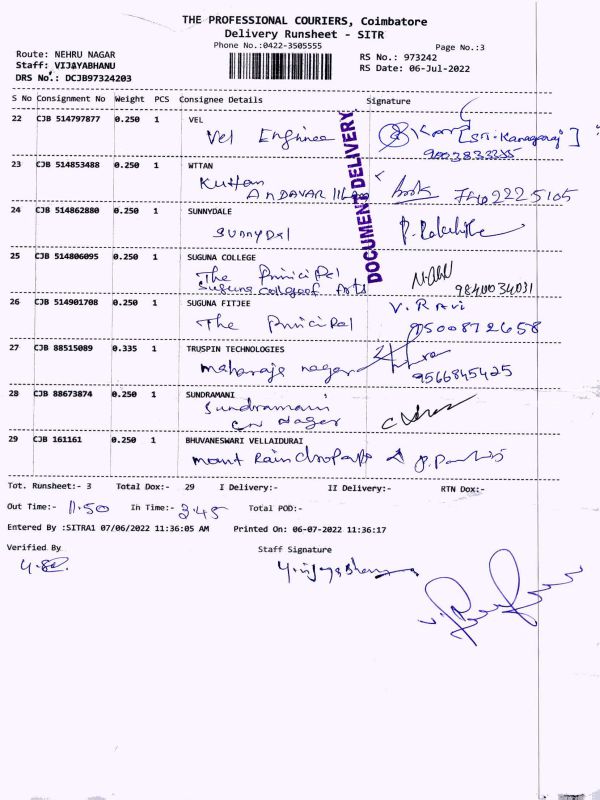 THE PROFESSIONAL COURIERS, Coimbatore
Delivery Runsheet - SITR
Phone No.:0422-3505555
Page No.:3
Route: NEHRU NAGAR
Staff: VIJAYABHANU
DRS No.: DCJB97324203
RS No.: 973242
RS Date: 06-Jul-2022
S No Consignment No Weight PCS Consignee Details Signature
22 CJB 514797877 0.250 1 VEL
Vel Engineer [Sri. Kanagaraj]
23 CJB 514853488 0.250 1 WTTAN
Kuttan
ANDAVAR
DOCUMENT DELIVERY
24 CJB 514862880 0.250 1 SUNNYDALE
Sunnydal
25 CJB 514806095 0.250 1 SUGUNA COLLEGE
The Principal
Suguna college of Arts 9840034031
26 CJB 514901708 0.250 1 SUGUNA FITJEE V. Ravi
The Principal 9500872658
27 CJB 88515089 0.335 1 TRUSPIN TECHNOLOGIES
maharaja nagar 9566845425
28 CJB 88673874 0.250 1 SUNDRAMANI
Sundramani
Nagar
29 CJB 161161 0.250 1 BHUVANESWARI VELLAIDURAI
Tot. Runsheet:- 3 Total Dox:- 29 I Delivery:- II Delivery:- RTN Dox:-
Out Time:- 11.50 In Time:- 3.45 Total POD:-
Entered By :SITRA1 07/06/2022 11:36:05 AM Printed On: 06-07-2022 11:36:17
Verified By Staff Signature